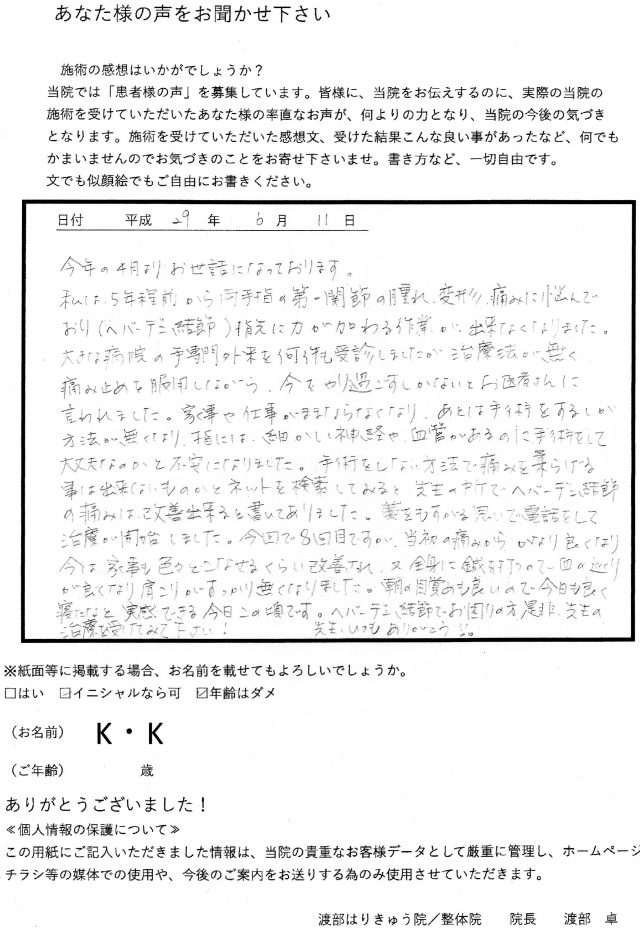 あなた様の声をお聞かせ下さい
施術の感想はいかがでしょうか？
当院では「患者様の声」を募集しています。皆様に、当院をお伝えするのに、実際の当院の
施術を受けていただいたあなた様の率直なお声が、何よりの力となり、当院の今後の気づき
となります。施術を受けていただいた感想文、受けた結果こんな良い事があったなど、何でも
かまいませんのでお気づきのことをお寄せ下さいませ。書き方など、一切自由です。
文でも似顔絵でもご自由にお書きください。
日付　平成 29 年 6 月 11 日
今年の4月よりお世話になっております。
私は、5年程前から両手指の第一関節の腫れ、変形、痛みに悩んで
おり(ヘバーデン結節)指先に力が加わる作業が、出来なくなりました。
大きな病院の手専門外来を何件も受診しましたが治療法が無く
痛み止めを服用しながら、今をやり過ごすしかないとお医者さんに
言われました。家事や仕事がままならなくなり、あとは手術をするしか
方法が無くなり、指には、細かい神経や血管があるのに手術をして
大丈夫なのかと不安になりました。手術をしない方法で痛みを柔らげる
事は出来ないものかとネットを検索してみると先生の所でヘバーデン結節
の痛みは、改善出来ると書いてありました。藁をもすがる思いで電話をして
治療が開始しました。今回で8回目ですが、当初の痛みからかなり良くなり
今は、家事も色々とこなせるくらい改善され、又全身に鍼を打つので血の巡り
が良くなり肩こりがすっかり無くなりました。朝の目覚めも良いので今日も良く
寝たなと実感できる今日この頃です。ヘバーデン結節でお困りの方是非、先生の
治療を受けてみて下さい！　先生、いつもありがとう!!。
※紙面等に掲載する場合、お名前を載せてもよろしいでしょうか。
□はい　☑イニシャルなら可　☑年齢はダメ
（お名前）　K・K
（ご年齢）　歳
ありがとうございました！
≪個人情報の保護について≫
この用紙にご記入いただきました情報は、当院の貴重なお客様データとして厳重に管理し、ホームページ
チラシ等の媒体での使用や、今後のご案内をお送りする為のみ使用させていただきます。
渡部はりきゅう院／整体院　院長　渡部　卓